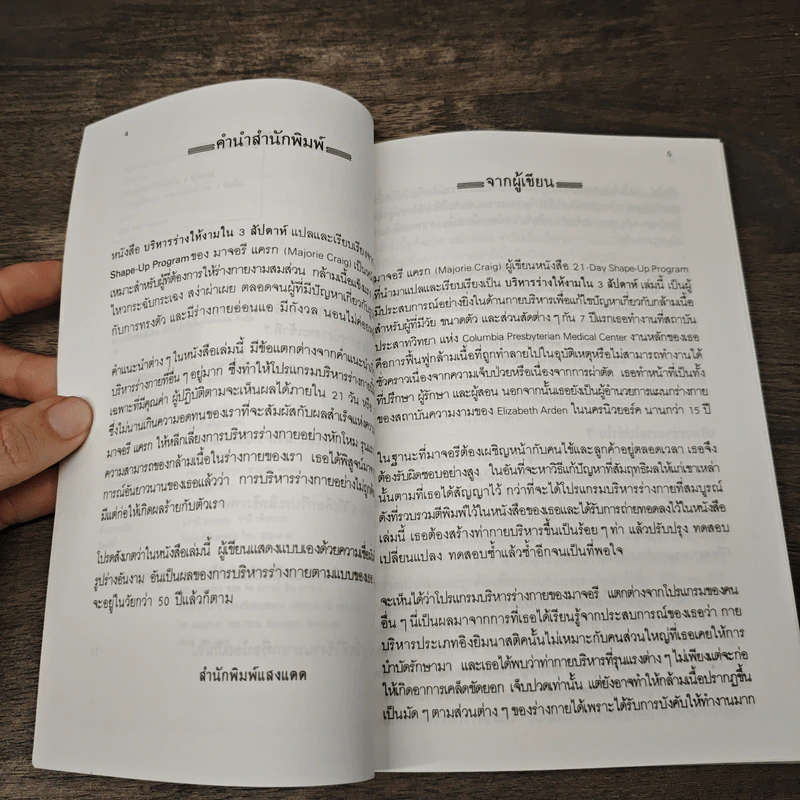 4
คำนำสำนักพิมพ์
หนังสือ บริหารร่างให้งามใน 3 สัปดาห์ แปลและเรียบเรียงจาก
Shape-Up Program ของ มาจอรี แครก (Majorie Craig) เป็น
เหมาะสำหรับผู้ที่ต้องการให้ร่างกายงามสมส่วน กล้ามเนื้อแข็งแรง
ไหวกระฉับกระเฉง สง่าผ่าเผย ตลอดจนผู้ที่มีปัญหาเกี่ยวกับ
กับการทรงตัว และมีร่างกายอ่อนแอ มีกังวล นอนไม่ค่อย
คำแนะนำต่าง ๆ ในหนังสือเล่มนี้ มีข้อแตกต่างจากคำแนะนำ
บริหารร่างกายที่อื่น ๆ อยู่มาก ซึ่งทำให้โปรแกรมบริหารร่างกาย
เฉพาะที่มีคุณค่า ผู้ปฏิบัติตามจะเห็นผลได้ภายใน 21 วัน
ซึ่งไม่นานเกินความอดทนของเราที่จะสัมผัสกับผลสำเร็จแห่ง
มาจอรี แครก ให้หลีกเลี่ยงการบริหารร่างกายอย่างหักโหม
ความสามารถของกล้ามเนื้อในร่างกายของเรา เธอได้พิสูจน์
การณ์อันยาวนานของเธอแล้วว่า การบริหารร่างกายอย่างไม่ถูก
มีแต่ก่อให้เกิดผลร้ายกับตัวเรา
โปรดสังเกตว่าในหนังสือเล่มนี้ ผู้เขียนแสดงแบบเองด้วยความ
รูปร่างอันงาม อันเป็นผลของการบริหารร่างกายตามแบบของเธอ
จะอยู่ในวัยกว่า 50 ปีแล้วก็ตาม
สำนักพิมพ์แสงแดด
5
จากผู้เขียน
มาจอรี แครก (Majorie Craig) ผู้เขียนหนังสือ 21-Day Shape-Up Program
ที่นำมาแปลและเรียบเรียงเป็น บริหารร่างให้งามใน 3 สัปดาห์ เล่มนี้ เป็นผู้
มีประสบการณ์อย่างยิ่งในด้านกายบริหารเพื่อแก้ไขปัญหาเกี่ยวกับกล้ามเนื้อ
สำหรับผู้ที่มีวัย ขนาดตัว และส่วนสัดต่าง ๆ กัน 7 ปีแรกเธอทำงานที่สถาบัน
ประสาทวิทยา แห่ง Columbia Presbyterian Medical Center งานหลักของเธอ
คือการฟื้นฟูกล้ามเนื้อที่ถูกทำลายไปในอุบัติเหตุหรือไม่สามารถทำงานได้
ชั่วคราวเนื่องจากความเจ็บป่วยหรือเนื่องจากการผ่าตัด เธอทำหน้าที่เป็นทั้ง
ที่ปรึกษา ผู้รักษา และผู้สอน นอกจากนั้นเธอยังเป็นผู้อำนวยการแผนกร่างกาย
ของสถาบันความงามของ Elizabeth Arden ในนครนิวยอร์ค นานกว่า 15 ปี
ในฐานะที่มาจอรีต้องเผชิญหน้ากับคนไข้และลูกค้าอยู่ตลอดเวลา เธอจึง
ต้องรับผิดชอบอย่างสูง ในอันที่จะหาวิธีแก้ปัญหาที่สัมฤทธิผลให้แก่เขาเหล่า
นั้นตามที่เธอได้สัญญาไว้ กว่าที่จะได้โปรแกรมบริหารร่างกายที่สมบูรณ์
ดังที่รวบรวมตีพิมพ์ไว้ในหนังสือของเธอและได้รับการถ่ายทอดลงไว้ในหนังสือ
เล่มนี้ เธอต้องสร้างท่ากายบริหารขึ้นเป็นร้อย ๆ ท่า แล้วปรับปรุง ทดสอบ
เปลี่ยนแปลง ทดสอบซ้ำแล้วซ้ำอีกจนเป็นที่พอใจ
จะเห็นได้ว่าโปรแกรมบริหารร่างกายของมาจอรี แตกต่างจากโปรแกรมของคน
อื่น ๆ นี่เป็นผลมาจากการที่เธอได้เรียนรู้จากประสบการณ์ของเธอว่า กาย
บริหารประเภทอิงยิมนาสติคนั้นไม่เหมาะกับคนส่วนใหญ่ที่เธอเคยให้การ
บำบัดรักษามา และเธอได้พบว่าท่ากายบริหารที่รุนแรงต่าง ๆ ไม่เพียงแต่จะก่อ
ให้เกิดอาการเคล็ดขัดยอก เจ็บปวดเท่านั้น แต่ยังอาจทำให้กล้ามเนื้อปรากฏขึ้น
เป็นมัด ๆ ตามส่วนต่าง ๆ ของร่างกายได้เพราะได้รับการบังคับให้ทำงานมาก